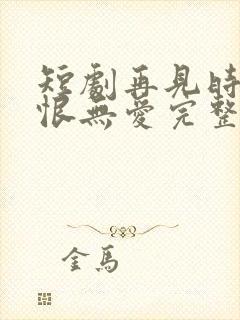 短劇再見時
恨無愛完整
金馬